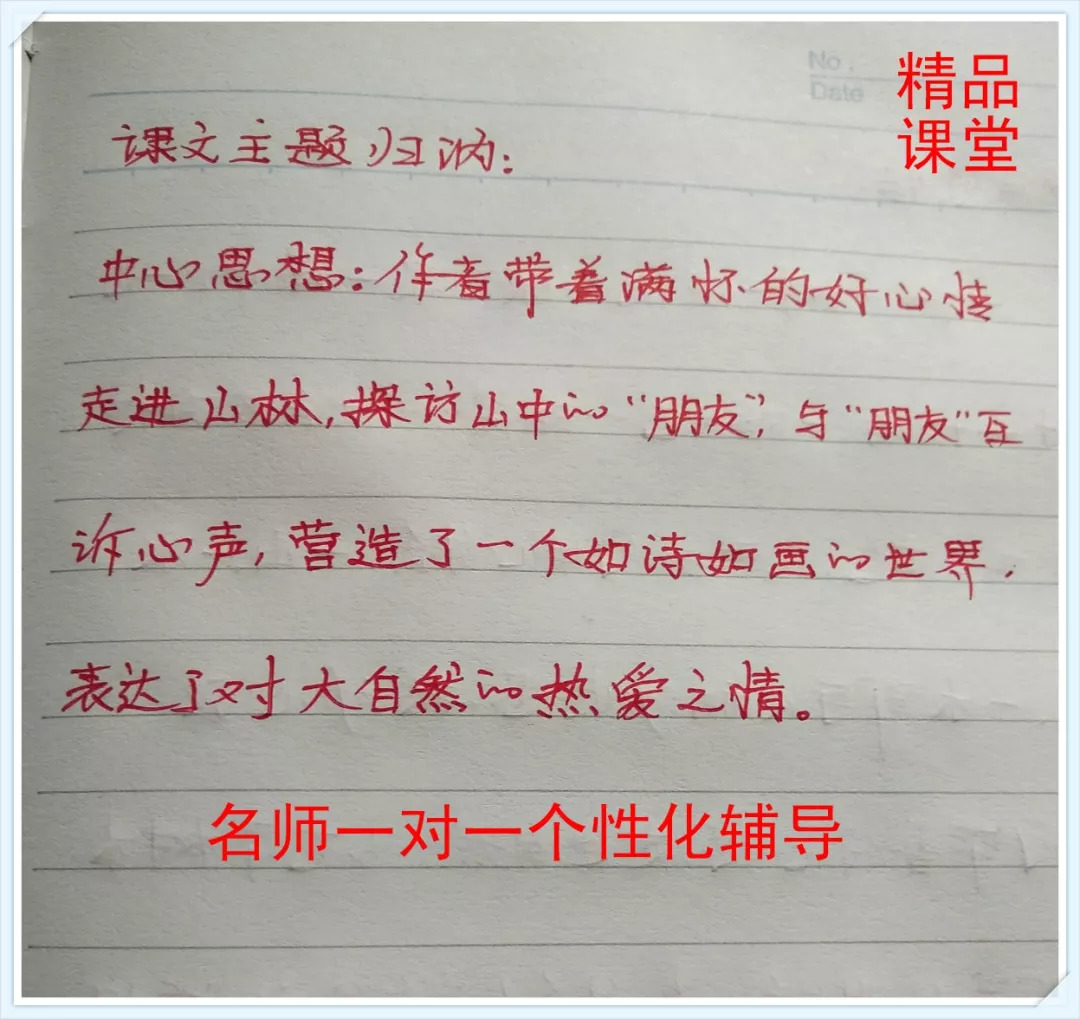 No.
Date
精品
课堂
课文主题归纳：
中心思想：作者带着满怀的好心情
走进山林，探访山中的“朋友”，与“朋友”互
诉心声，营造了一个如诗如画的世界，
表达了对大自然的热爱之情。
名师一对一个性化辅导